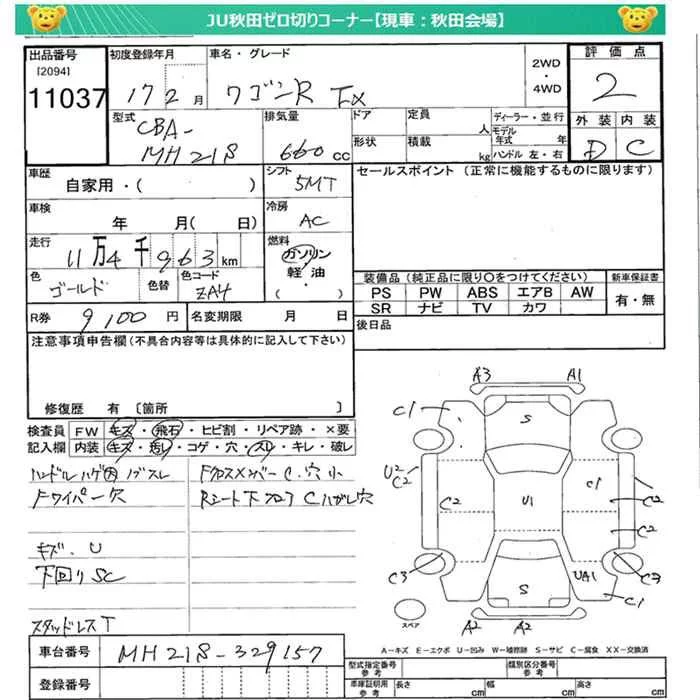 JU秋田ゼロ切りコーナー【現車：秋田会場】
出品番号
[2094]
11037
初度登録年月
17 2 月
車名・グレード
ワゴンR FX
2WD
・
4WD
評価点
2
外装 内装
D C
型式
CBA-
MH21S
排気量
660 cc
ドア
形状
定員 人
積載 kg
ディーラー・並行
モデル年式 年
ハンドル 左・右
車歴
自家用・( )
シフト
5MT
セールスポイント （正常に機能するものに限ります）
車検
年 月( 日)
冷房
AC
走行
11万4千963km
燃料
ガソリン
軽・油
( )
色
ゴールド
色替
色コード
ZA4
装備品（純正品に限り○をつけてください）
新車保証書
PS PW ABS エアB AW
SR ナビ TV カワ
有・無
R券 9100 円
名変期限 月 日
後日品
注意事項申告欄(不具合内容等は具体的に記入して下さい)
修復歴 有 〔箇所 〕
検査員 FW キズ・飛石・ヒビ割・リペア跡・×要
記入欄 内装 キズ・汚れ・コゲ・穴・スレ・キレ・破レ
ハンドルハゲ
Fクロスメンバー C、穴小
Fワイパー欠
Rシート下フロア Cハガレ穴
キズ、U
下回りSC
スタッドレスT
A3 A1
C1
S
U2
C2
C2
U1
C1
C2
C2
C3
UA1
C3
S
C1
A2 A2
スペア
車台番号 MH21S-329157
登録番号
A－キズ E－エクボ U－凹み W－補修跡 S－サビ C－腐食 XX－交換済
型式指定番号
参考
類別区分番号
参考
車庫証明用
参考
長さ cm 幅 cm 高さ cm